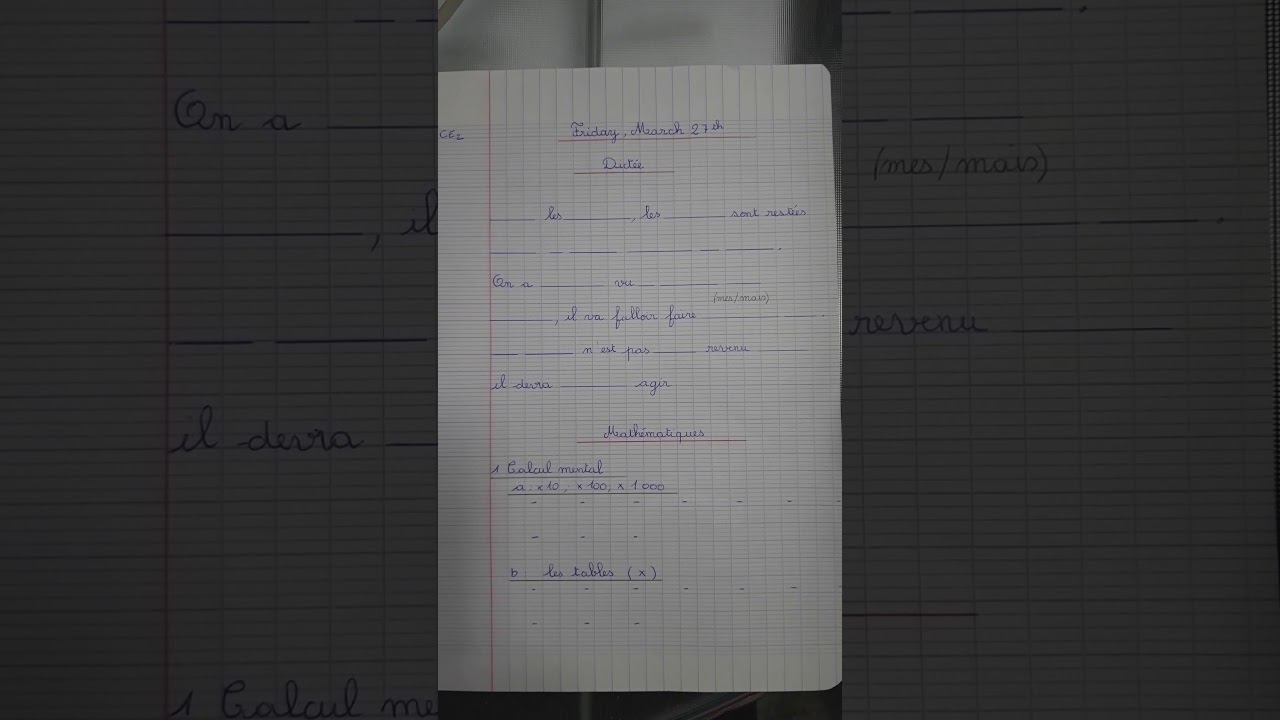 CE2
Friday, March 27th
Dictée
______ les ______, les ______ sont restées
______ __ ______ ______ __ ______.
On a ______ vu __ ______ ______
(mes/mais)
______, il va falloir faire ______ ______.
____ ______ n'est pas ______ revenu ______
il devra ______ agir
Mathématiques
1 Calcul mental
a. x10, x100, x1000
- - - - - - -
- - -
b. les tables (x)
- - - - - - -
- - -